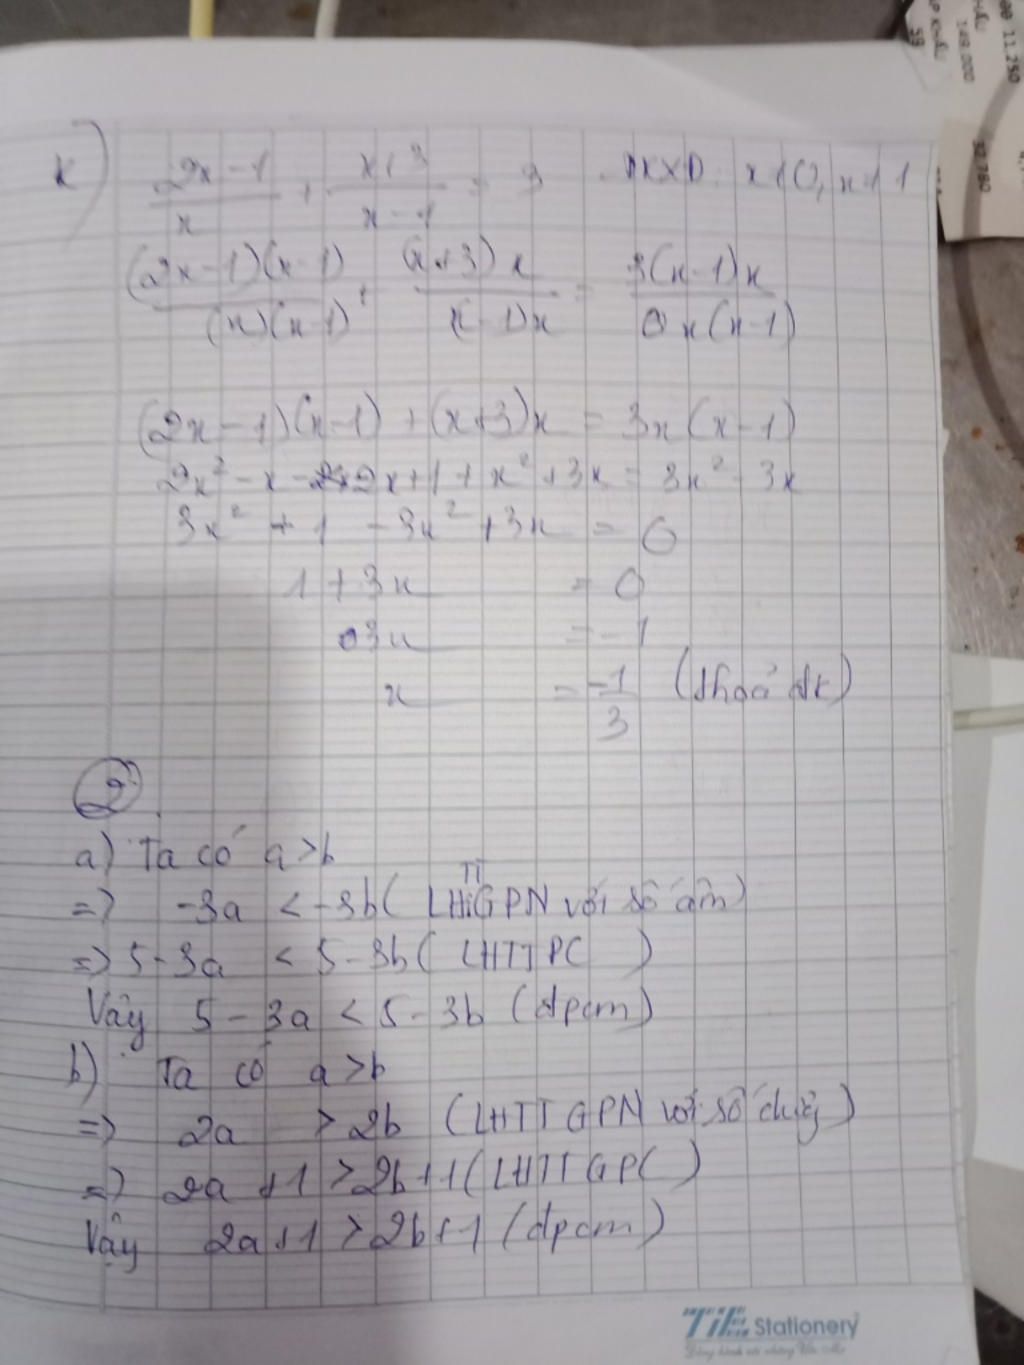 11.250
149.000
ẬP KHẨU
59
32.780
k) (2x-1)/x + (x+3)/(x-1) = 3 ĐKXĐ: x≠0, x≠1
(2x-1)(x-1)/(x)(x-1) + (x+3)x/(x-1)x = 3(x-1)x/x(x-1)
(2x-1)(x-1) + (x+3)x = 3x(x-1)
2x² - x - 2x + 1 + x² + 3x = 3x² - 3x
3x² + 1 - 3x² + 3x = 0
1 + 3x = 0
3x = -1
x = -1/3 (thoả đk)
2.
a) Ta có a>b
=> -3a < -3b ( LHTTGPN với số âm)
=> 5-3a < 5-3b ( LHTTPC )
Vậy 5-3a < 5-3b (đpcm)
b) Ta có a>b
=> 2a > 2b (LHTTGPN với số dương)
=> 2a+1 > 2b+1 (LHTTGPC)
Vậy 2a+1 > 2b+1 (đpcm)
TiE Stationery